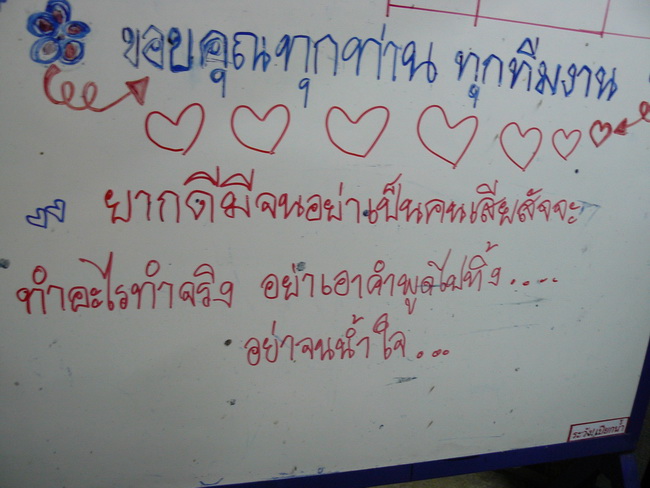 ขอบคุณทุกท่าน ทุกทีมงาน
ๆๆ ยากดีมีจนอย่าเป็นคนเสียสัจจะ
ทำอะไรทำจริง อย่าเอาคำพูดไปทิ้ง....
อย่าจนน้ำใจ...
ระวัง!เปียกน้ำ